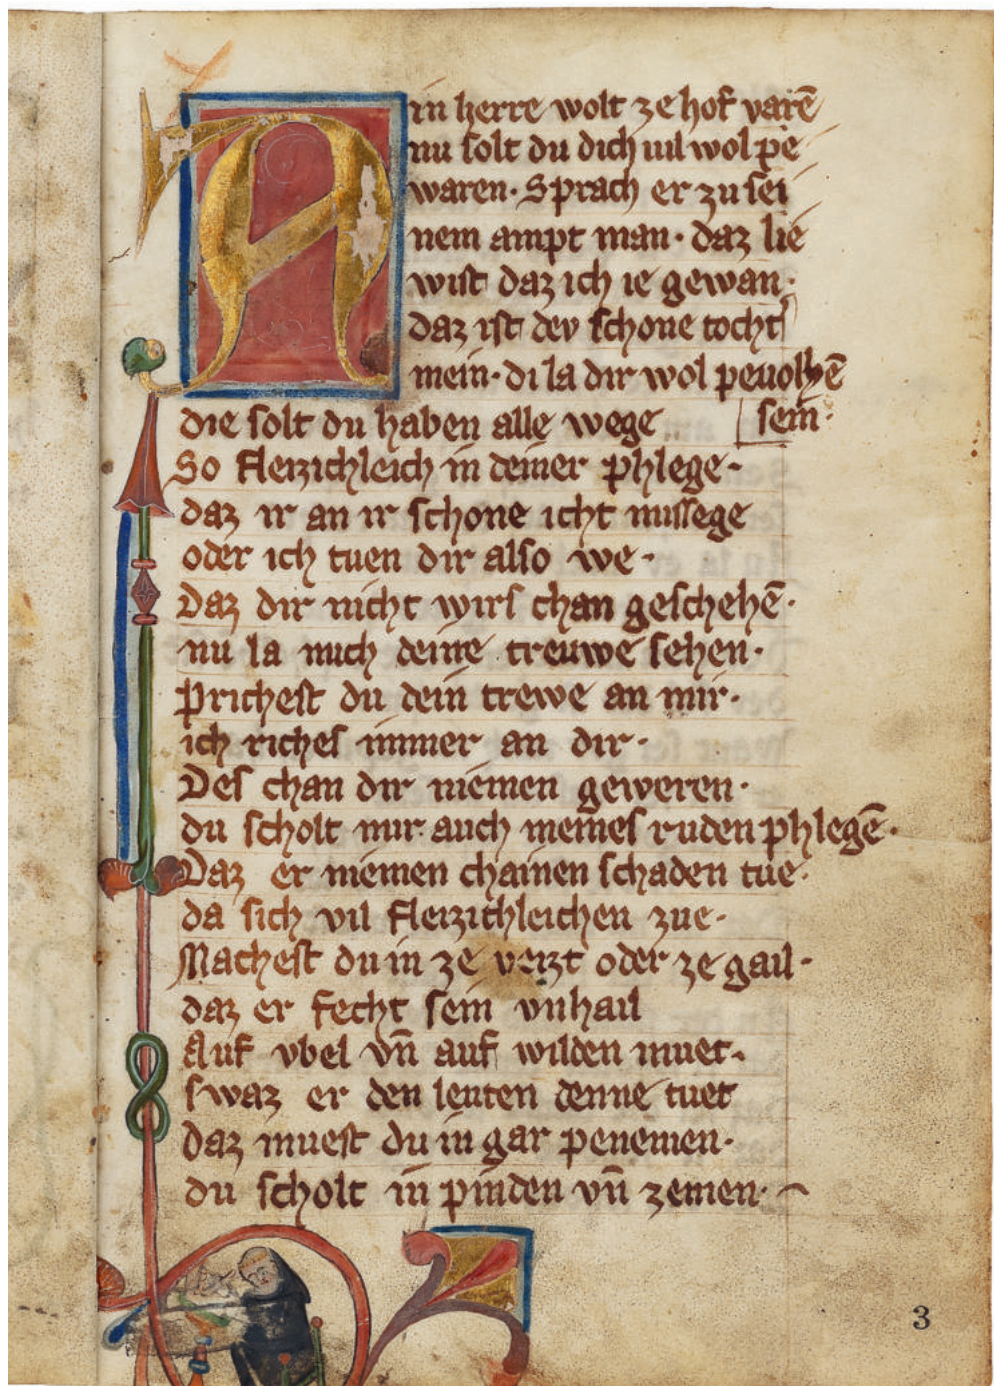 Ain herre wolt ze hof varē
nu solt du dich uil wol pe
waren· Sprach er zu sei
nem ampt man· daz lie
wist daz ich ie gewan·
daz ist dev schone tocht
mein· di la dir wol peuolhē
die solt du haben alle wege sein·
So fleizichleich in deiner phlege·
daz ir an ir schone icht missege
oder ich tuen dir also we·
Daz dir nicht wirs chan geschehē·
nu la mich deine treuwe sehen·
Prichest du dein trewe an mir·
ich riches immer an dir·
Des chan dir niemen geweren·
du scholt mir auch meines ruden phlegē·
Daz er niemen chainen schaden tue·
da sich vil fleizichleichen zue·
Machest du in ze veizt oder ze gail·
daz er fecht sein vnhail
Auf vbel vn̄ auf wilden muet·
swaz er den leuten denne tuet
daz muest du in gar penemen·
du scholt in pinden vn̄ zemen·
3